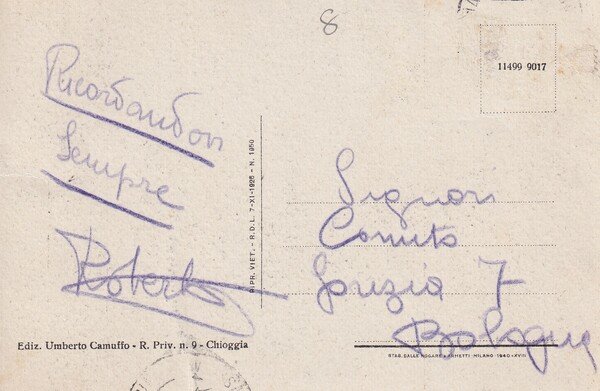 8
11499 9017
Ricordandovi
Sempre
Roberto
RIPR. VIET. - R. D. L. 7-XI-1925 - N. 1950
Signori
Comuto
7
Bologna
Ediz. Umberto Camuffo - R. Priv. n. 9 - Chioggia
STAB. DALLE NOGARE ARMETTI - MILANO 1940-XVIII